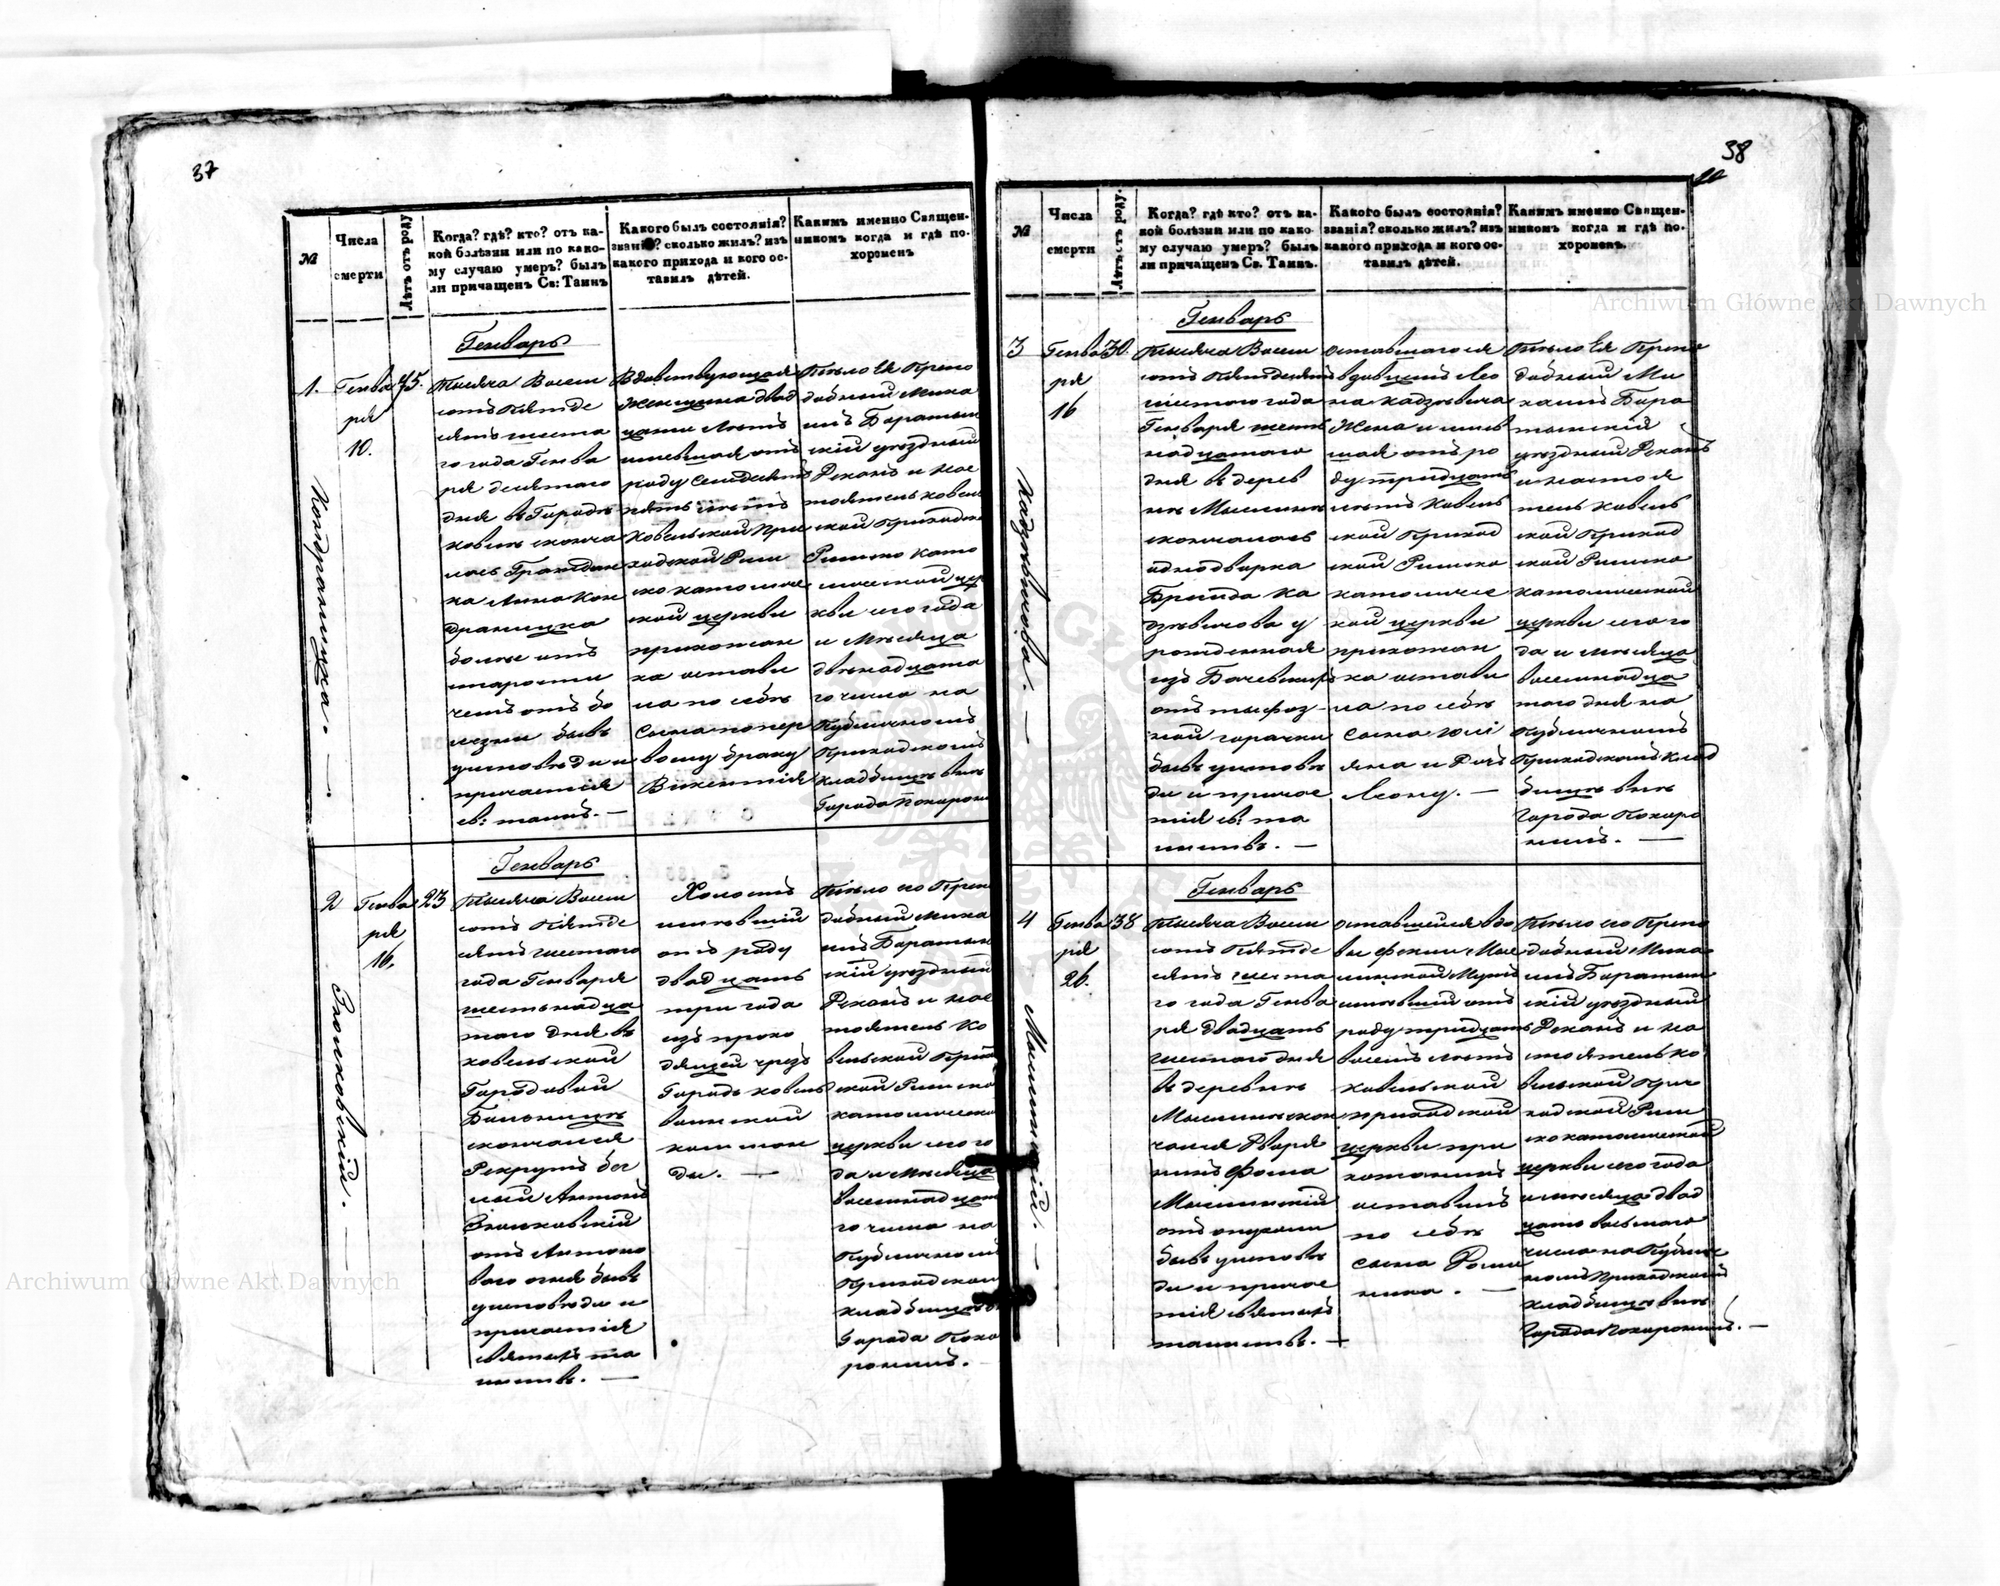 37
№
Числа
смерти
Лѣтъ отъ роду
Когда? гдѣ? кто? отъ ка-
кой болѣзни или по како-
му случаю умеръ? былъ
ли причащенъ Св: Таинъ
Какого былъ состоянія?
званія? сколько жилъ? изъ
какого прихода и кого ос-
тавилъ дѣтей.
Какимъ именно Священ-
никомъ когда и гдѣ по-
хороненъ
Генварь
1.
Генва
ря
10.
75.
Тысяча Восем
сотъ Пятьде
сятъ шеста
го года Генва
ря десятаго
дня въ Городѣ
Ковелѣ сконча
лась Граждан
ка Анна Кон
драницка
более отъ
старости
чемъ отъ бо
лезни бывъ
исповѣди и
причастія
св: таинъ. —
Вдовствующая
Женщина двад
цати лѣтъ
имевшая отъ
роду семдесятъ
пять лѣтъ
Ковельской При
ходской Рим
ско католичес
кой церкви
прихожан
ка остави
ла по себѣ
сына по пер
вому браку
Викентія
Тѣло Ея Препо
добный Миха
илъ Баратын
скій уѣздный
Деканъ и нас
тоятель Ковель
ской Приходск
Римско като
лической цер
кви сего года
и Мѣсяца
двѣнадцата
го числа на
Публичномъ
Приходскомъ
кладбищѣ внѣ
Города Похорони
Кондраницка. —
Генварь
2
Генва
ря
16.
23
Тысяча Восем
сотъ Пятьде
сятъ шестаго
года Генваря
шестьнадца
таго дня въ
Ковельской
Городовой
Больницѣ
скончался
Рекрутъ бег
лый Антонъ
отъ Антоно
ваго огня бывъ
исповѣди и
причастія
святыхъ та
инствъ. —
Холостъ
имѣвшій
отъ роду
двадцать
три года
изъ прохо
дящей чрезъ
Городъ Ковель
воинской
коман
ды. —
Тѣло его Препо
добный Миха
илъ Баратын
скій уѣздный
Деканъ и нас
тоятель Ко
вельской Прихо
дской Римско
католической
церкви сего го
да и Мѣсяца
восемнадцата
го числа на
Публичномъ
Приходском
кладбищѣ в
Города Похо
ронилъ.
38
№
Числа
смерти
Лѣтъ отъ роду.
Когда? гдѣ кто? отъ ка-
кой болѣзни или по како
му случаю умеръ? былъ
ли причащенъ Св. Таинъ.
Какого былъ состоянія?
званія? сколько жилъ? изъ
какого прихода и кого ос-
тавилъ дѣтей.
Какимъ именно Священ-
никомъ когда и гдѣ по-
хороненъ.
Генварь
3
Генва
ря
16
30.
Тысяча Восем
сотъ Пятьдесятъ
шестого года
Генваря шест
надцатого
дня въ дерев
нѣ Мышинѣ
скончалась
однодворка
Бригида Ка
дзѣвичова у
рожденная
изъ
отъ тифоз-
ной горячки
бывъ исповѣ
ди и причас
тія св: та
инствъ. —
оставшагося
вдовцемъ Лео
на Кадзѣвича
Жена и имѣв
шая отъ ро
ду тридцать
лѣтъ Ковель
ской Приход
ской Римско
католичес
кой церкви
прихожан
ка остави
ла по себѣ
сына Юлі
яна и Дочь
Леону. —
Тѣло Ея Препо
добный Ми
хаилъ Бара
тынскій
уѣздный Деканъ
и настоя
тель Ковель
ской Приход
ской Римско
католической
церкви сего го
да и мѣсяца
восемнадца
того дня на
Публичномъ
Приходскомъ Клад
бищѣ внѣ
Города Похоро
нилъ. —
Кадзѣвичова. —
Генварь
4
Генва
ря
26.
38
Тысяча Восем
сотъ Пятьде
сятъ шеста
го года Генва
ря двадцать
шестого дня
въ деревнѣ
Мышинѣ скон
чался Дворя
нинъ Фома
отъ опухоли
бывъ исповѣ
ди и причас
тія святыхъ
таинствъ. —
оставшейся вдо
вы
Мужъ
имѣвшій отъ
роду тридцать
восемъ лѣтъ
Ковельской
приходской
церкви при
хожанинъ
оставилъ
по себѣ
сына Доми
ника. —
Тѣло его Препо
добный Миха
илъ Баратын
скій уѣздный
Деканъ и на
стоятель Ко
вельской При
ходской Рим
ско католической
церкви сего года
и мѣсяца двад
цать восьмаго
числа на Публич
номъ Приходской
кладбищѣ внѣ
Города Похоронилъ. —
Archiwum Główne Akt Dawnych
Archiwum Główne Akt Dawnych